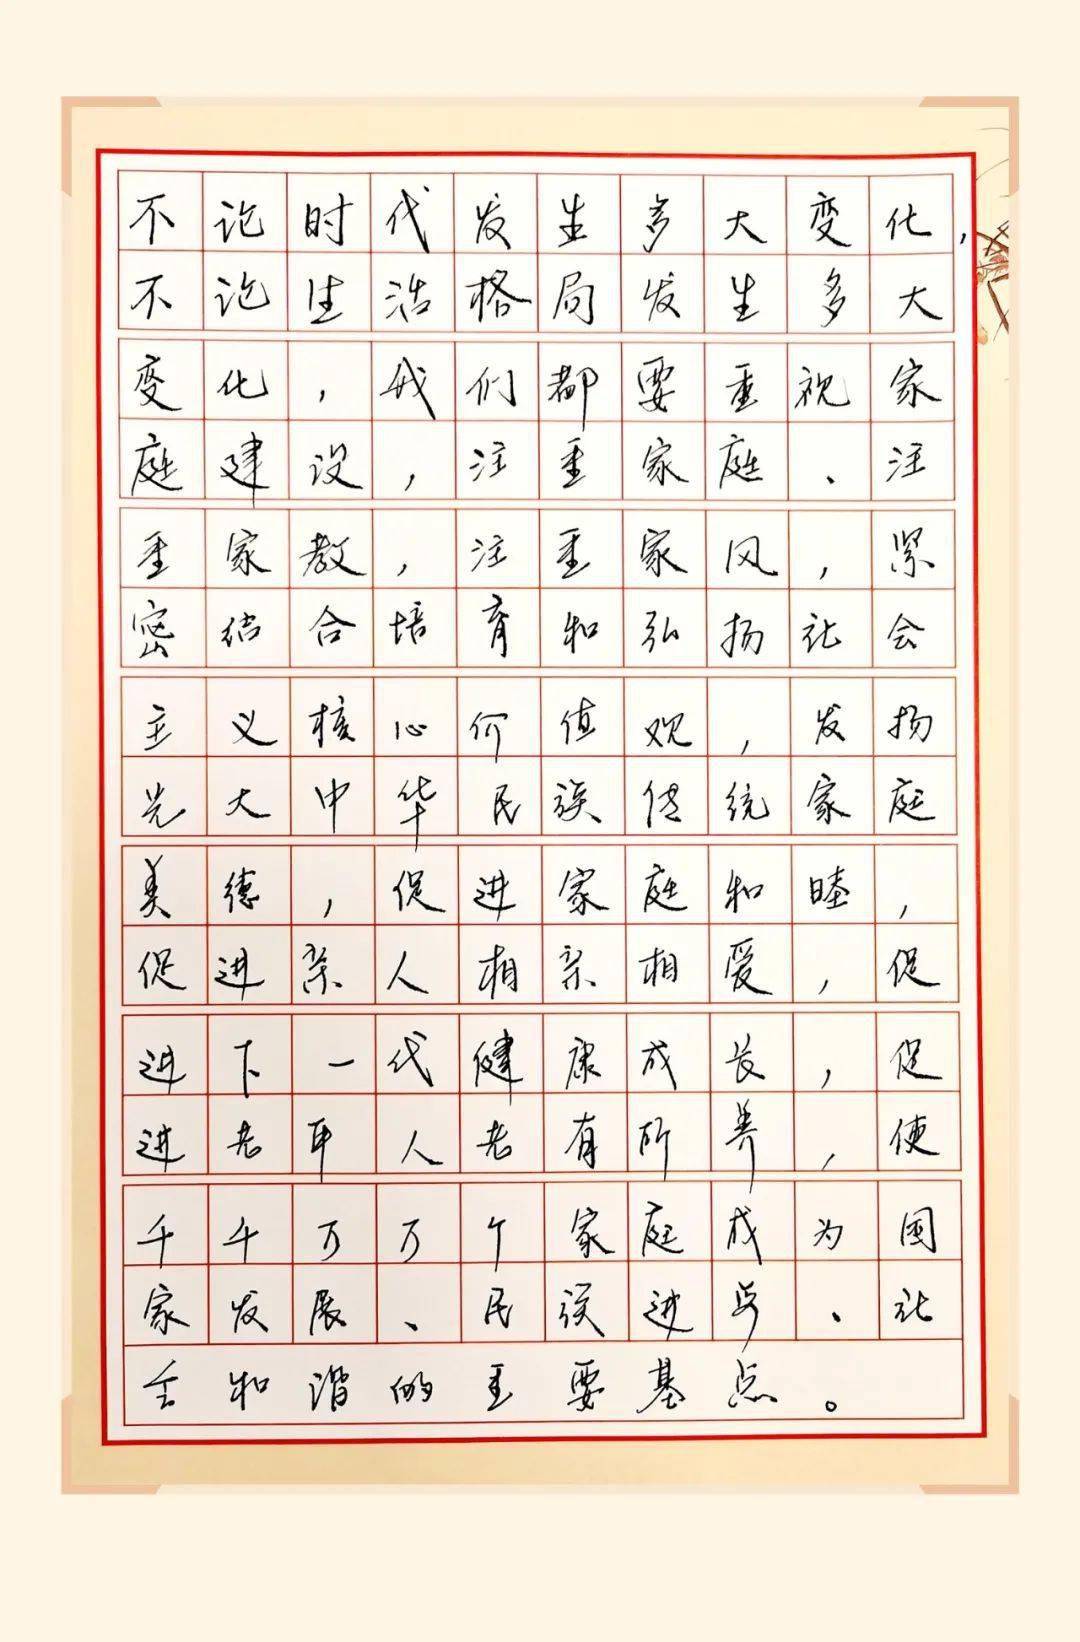 不论时代发生多大变化，
不论生活格局发生多大
变化，我们都要重视家
庭建设，注重家庭、注
重家教，注重家风，紧
密结合培育和弘扬社会
主义核心价值观，发扬
光大中华民族传统家庭
美德，促进家庭和睦，
促进亲人相亲相爱，促
进下一代健康成长，促
进老年人老有所养，使
千千万万个家庭成为国
家发展、民族进步、社
会和谐的重要基点。